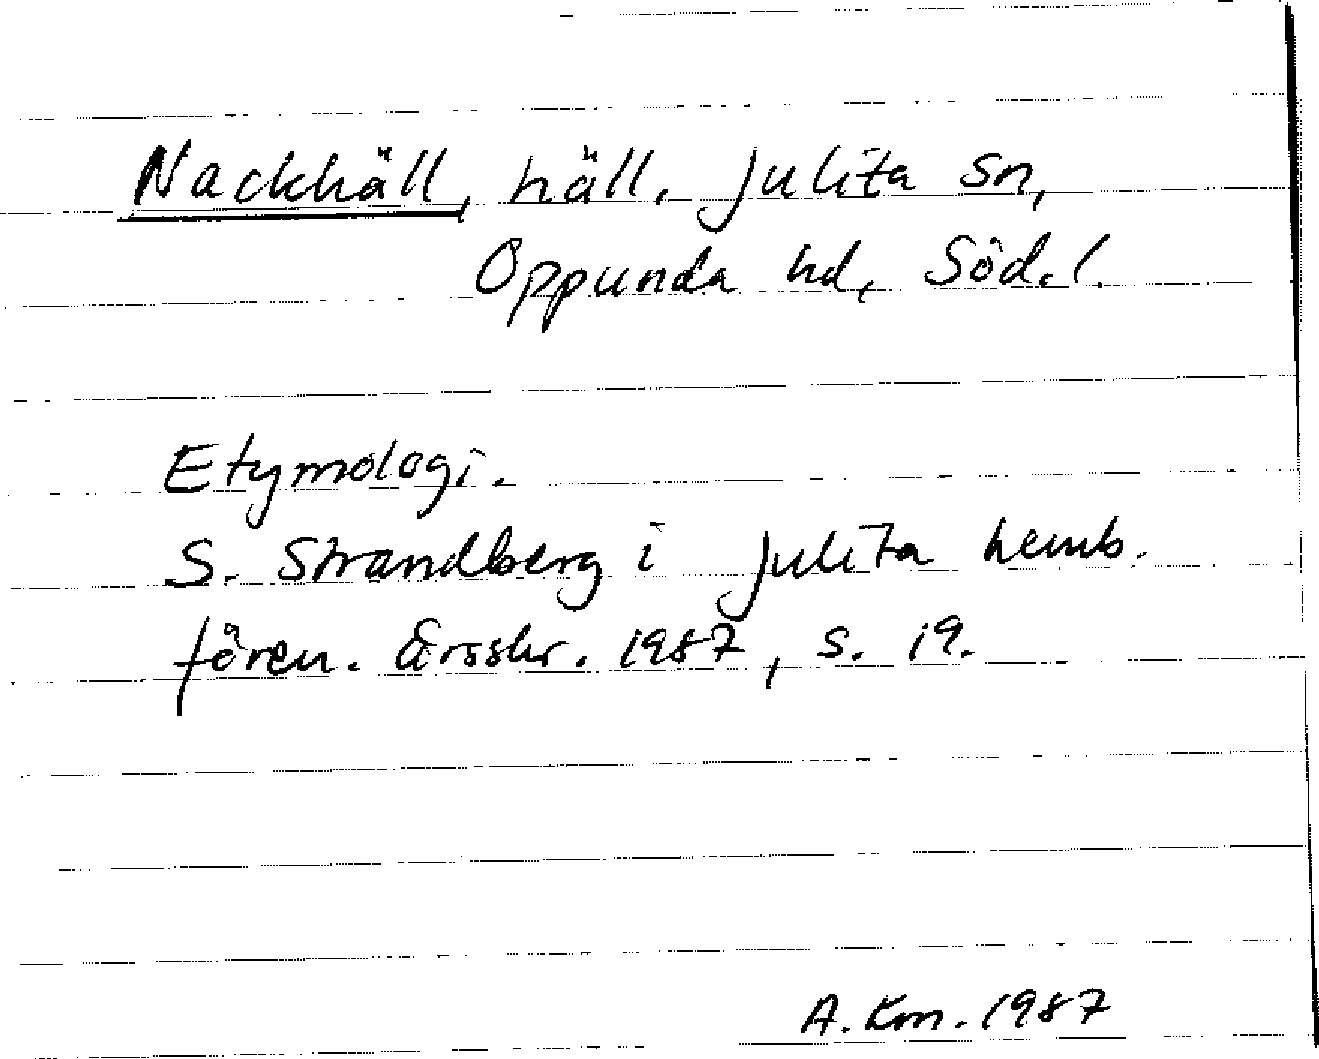 Nackhäll, häll, Julita sn,
Oppunda hd, Söd.l.
Etymologi.
S. Strandberg i Julita hemb.
fören. årsskr. 1987, s. 19.
A. Km. 1987